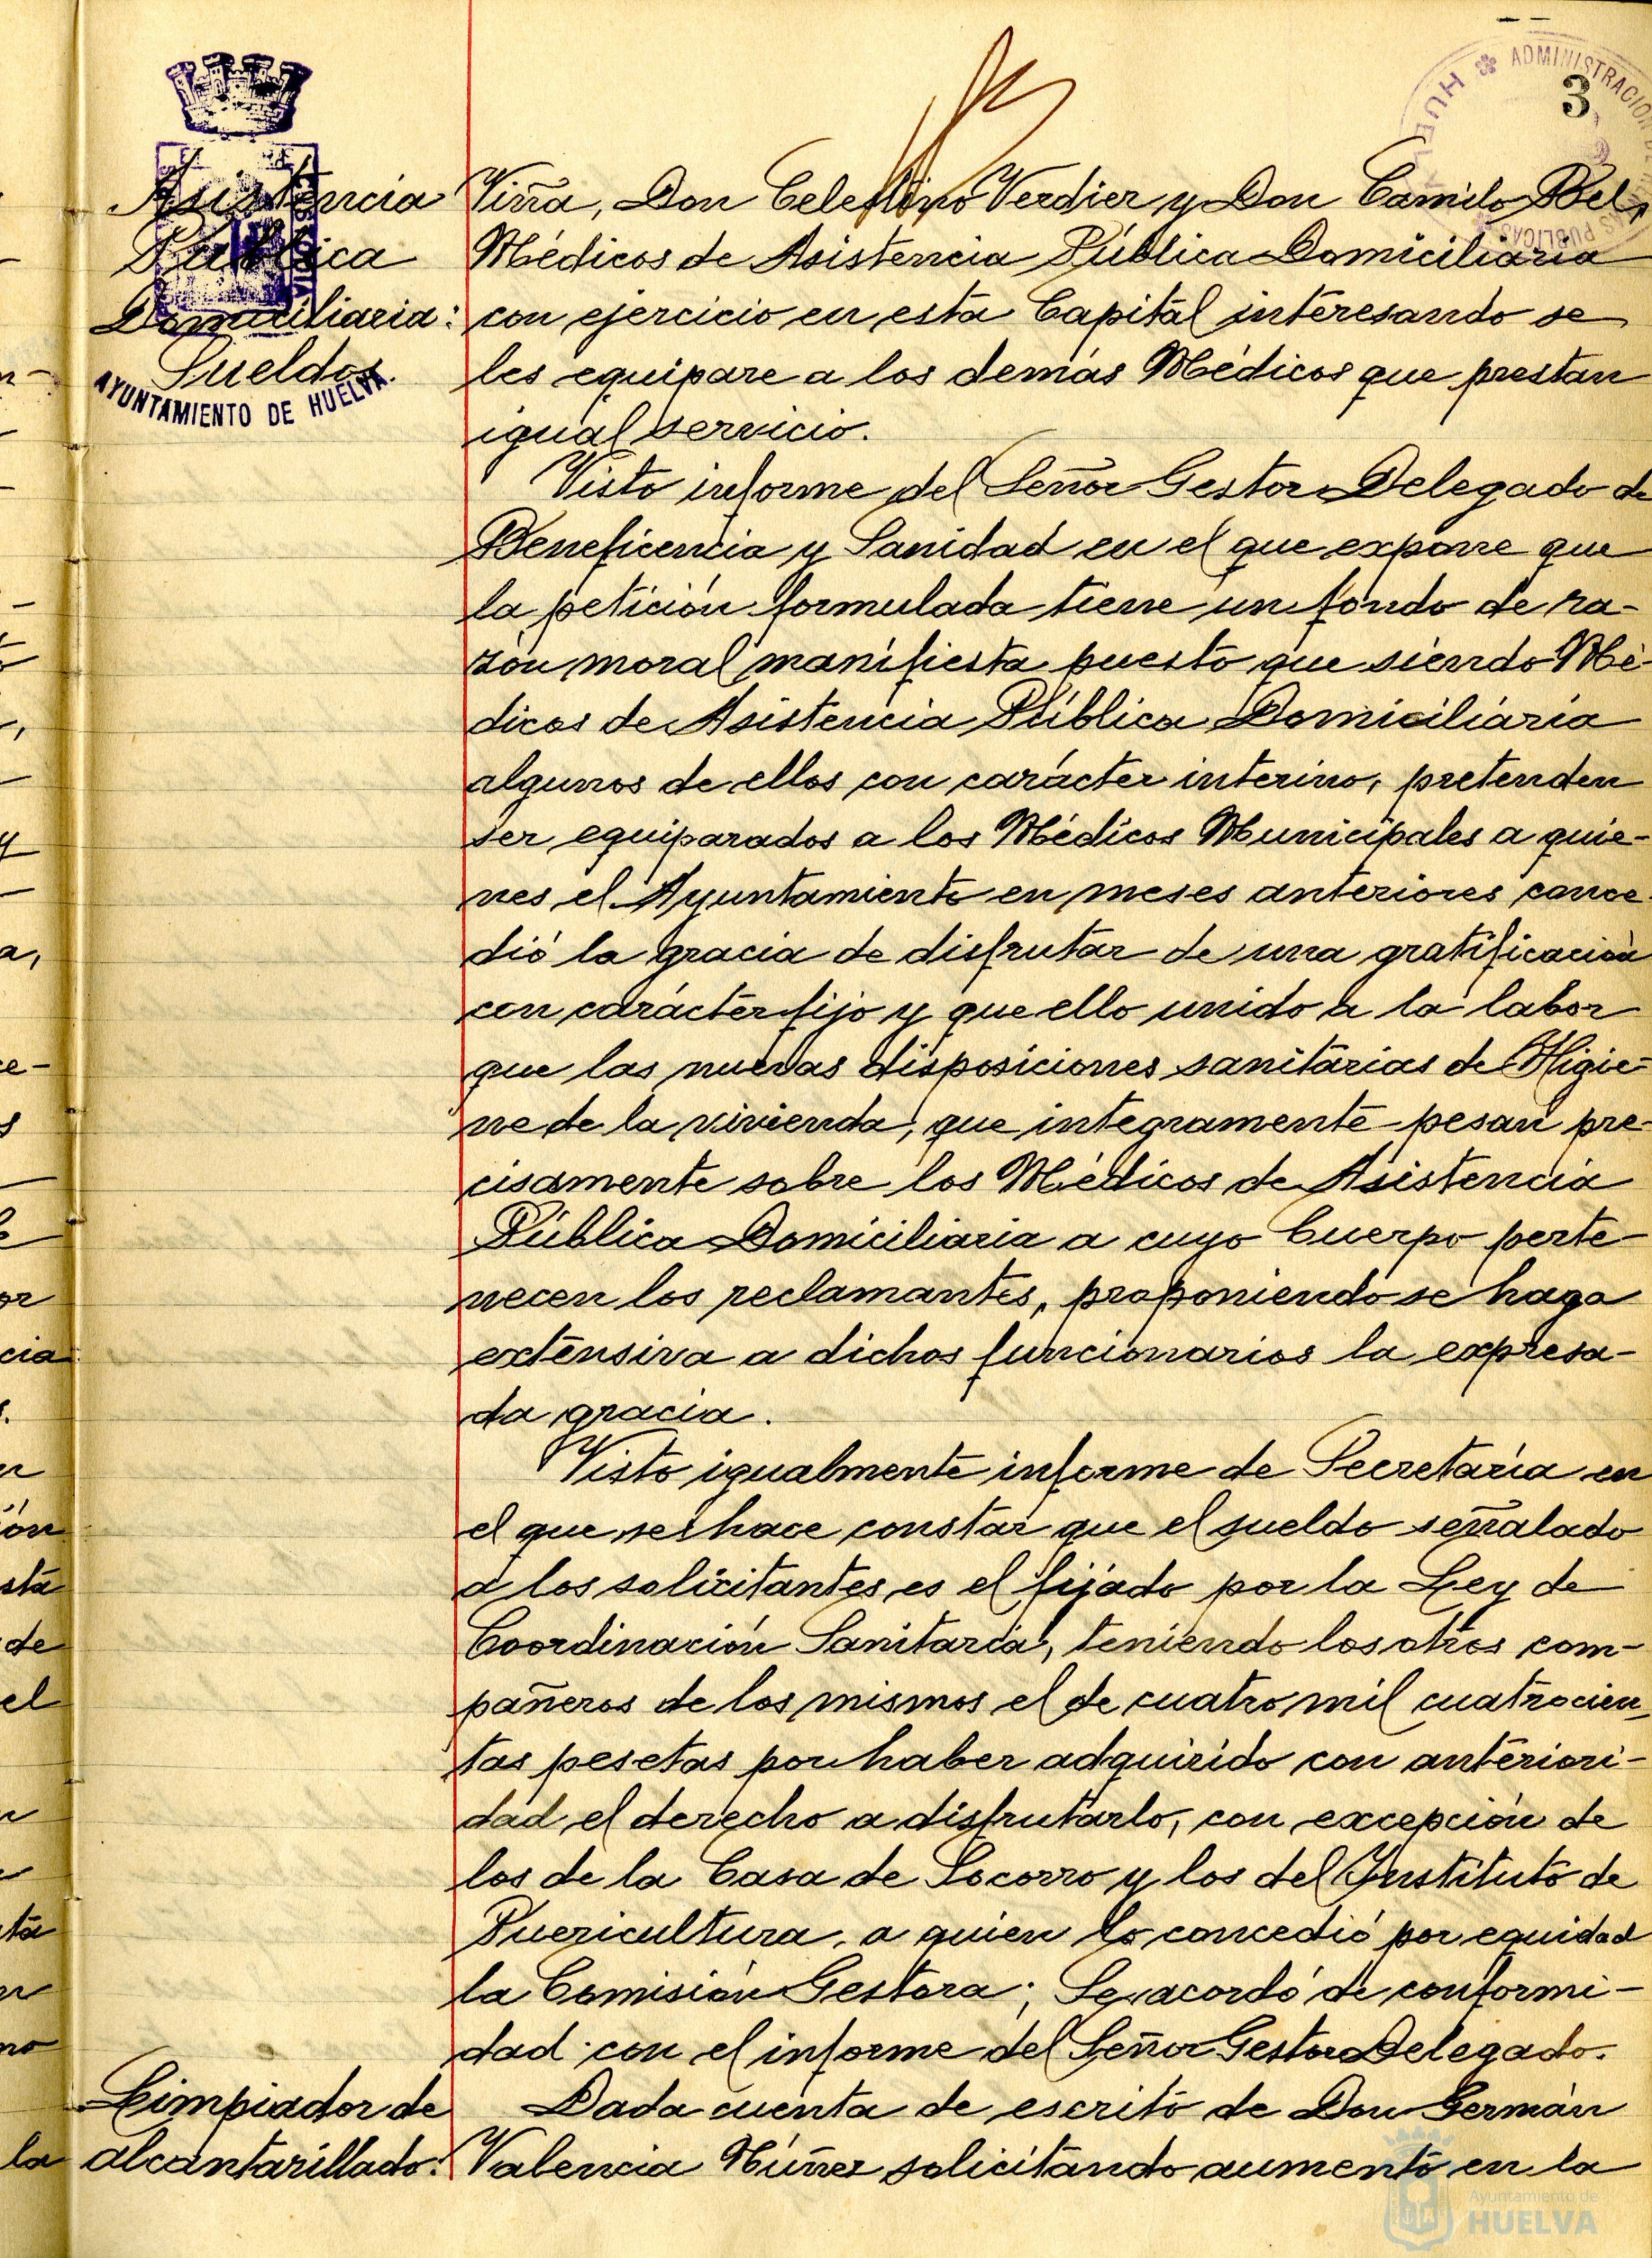 ADMINISTRACION
HUELVA
PUBLICAS
3
Asistencia
Pública
Domiciliaria:
Sueldos.
AYUNTAMIENTO DE HUELVA.
Viña, Don Celestino Verdier y Don Camilo Bel,
Médicos de Asistencia Pública Domiciliaria
con ejercicio en esta Capital interesando se
les equipare a los demás Médicos que prestan
igual servicio.
Visto informe del Señor Gestor Delegado de
Beneficencia y Sanidad en el que expone que
la petición formulada tiene un fondo de ra-
zón moral manifiesta puesto que siendo Mé-
dicos de Asistencia Pública Domiciliaria
algunos de ellos con carácter interino, pretenden
ser equiparados a los Médicos Municipales a quie-
nes el Ayuntamiento en meses anteriores conce-
dió la gracia de disfrutar de una gratificación
con carácter fijo y que ello unido a la labor
que las nuevas disposiciones sanitarias de Higie-
ne de la vivienda, que integramente pesan pre-
cisamente sobre los Médicos de Asistencia
Pública Domiciliaria a cuyo Cuerpo perte-
necen los reclamantes, proponiendo se haga
extensiva a dichos funcionarios la expresa-
da gracia.
Visto igualmente informe de Secretaría en
el que se hace constar que el sueldo señalado
a los solicitantes es el fijado por la Ley de
Coordinación Sanitaria, teniendo los otros com-
pañeros de los mismos el de cuatro mil cuatrocien-
tas pesetas por haber adquirido con anteriori-
dad el derecho a disfrutarlo, con excepción de
los de la Casa de Socorro y los del Instituto de
Puericultura, a quien lo concedió por equidad
la Comisión Gestora; Se acordó de conformi-
dad con el informe del Señor Gestor Delegado.
Limpiador de
alcantarillado:
Dada cuenta de escrito de Don Germán
Valencia Núñez solicitando aumento en la
Ayuntamiento de
HUELVA